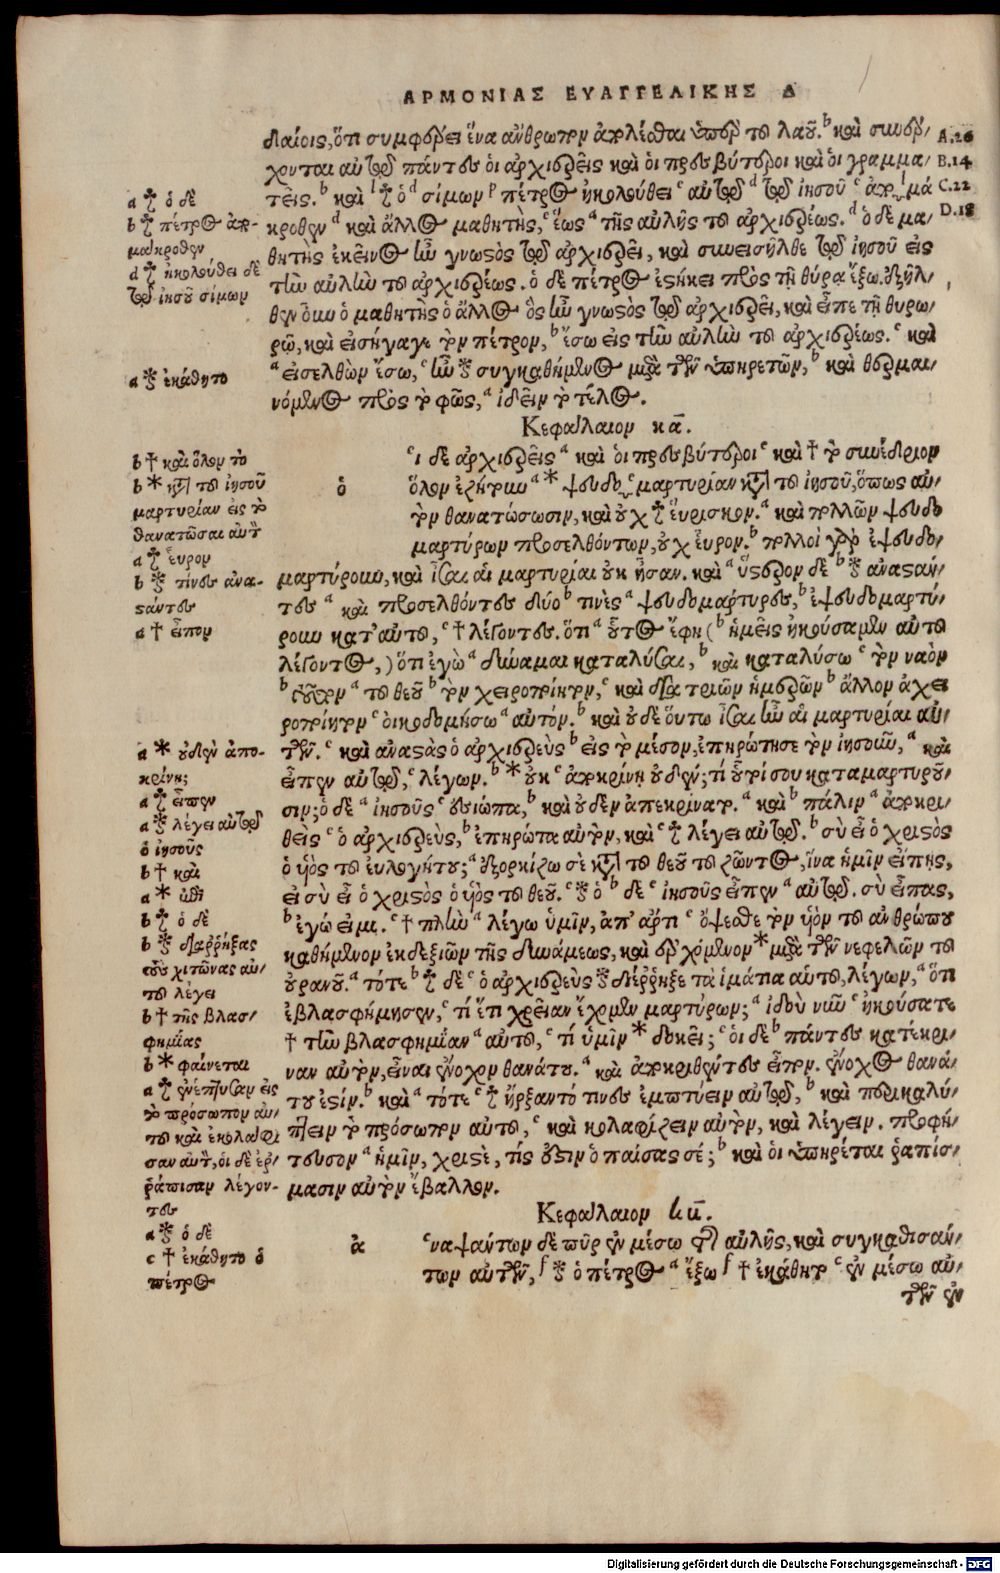 ΑΡΜΟΝΙΑΣ ΕΥΑΓΓΕΛΙΚΗΣ Δ
δαίοις, ὅτι συμφέρει ἕνα ἄνθρωπον ἀπολέσθαι ὑπὲρ τοῦ λαοῦ. b καὶ συνέρ/
χονται αὐτῷ πάντες οἱ ἀρχιερεῖς καὶ οἱ πρεσβύτεροι καὶ οἱ γραμμα/
τεῖς. b καὶ ὁ d σίμων πέτρος ἠκολούθει c αὐτῷ d τῷ ἰησοῦ c ἀπὸ μα
κρόθεν d καὶ ἄλλος μαθητὴς, c ἕως a τῆς αὐλῆς τοῦ ἀρχιερέως. d ὁ δὲ μα/
θητὴς ἐκεῖνος ἦν γνωστὸς τῷ ἀρχιερεῖ, καὶ συνεισῆλθε τῷ ἰησοῦ εἰς
τὴν αὐλὴν τοῦ ἀρχιερέως. ὁ δὲ πέτρος ἑστήκει πρὸς τῇ θύρᾳ ἔξω. ἐξῆλ/
θεν οὖν ὁ μαθητὴς ὁ ἄλλος ὃς ἦν γνωστὸς τῷ ἀρχιερεῖ, καὶ εἶπε τῇ θυρω/
ρῷ, καὶ εἰσήγαγε τὸν πέτρον, b ἔσω εἰς τὴν αὐλὴν τοῦ ἀρχιερέως. c καὶ
a εἰσελθὼν ἔσω, c ἦν συγκαθήμενος μετὰ τῶν ὑπηρετῶν, b καὶ θερμαι/
νόμενος πρὸς τὸ φῶς, a ἰδεῖν τὸ τέλος.
A.26
B.14
C.22
D.18
a ὁ δὲ
b πέτρος ἀπ-
μακρόθεν
d ἠκολούθει δὲ
τῷ ἰησοῦ σίμων
a ἐκάθητο
Κεφάλαιον κα.
ὁ
c ι δὲ ἀρχιερεῖς a καὶ οἱ πρεσβύτεροι c καὶ † τὸ συνέδριον
ὅλον ἐζήτουν a * ψευδο c μαρτυρίαν κατὰ τοῦ ἰησοῦ, ὅπως αὐ/
τὸν θανατώσωσιν, καὶ οὐχ εὕρισκον. a καὶ πολλῶν ψευδο
μαρτύρων προσελθόντων, οὐχ εὗρον. b πολλοὶ γὰρ ἐψευδο/
μαρτύρουν, καὶ ἶσαι αἱ μαρτυρίαι οὐκ ἦσαν. καὶ a ὕστερον δὲ b ἀναστάν/
τες a καὶ προσελθόντες δύο b τινὲς a ψευδομάρτυρες, b ἐψευδομαρτύ/
ρουν κατ' αὐτοῦ, c † λέγοντες. ὅτι a οὗτος ἔφη ( b ἡμεῖς ἠκούσαμεν αὐτοῦ
λέγοντος, ) ὅτι ἐγὼ a δύναμαι καταλύσαι, b καὶ καταλύσω c τὸν ναὸν
b τοῦτον a τοῦ θεοῦ b τὸν χειροποίητον, c καὶ διὰ τριῶν ἡμερῶν b ἄλλον ἀχει
ροποίητον c οἰκοδομήσω a αὐτόν. b καὶ οὐδὲ οὕτω ἶσαι ἦν αἱ μαρτυρίαι αὐ/
τῶν. c καὶ ἀναστὰς ὁ ἀρχιερεὺς b εἰς τὸ μέσον, ἐπηρώτησε τὸν ἰησοῦν, a καὶ
εἶπεν αὐτῷ, c λέγων. b * οὐκ c ἀποκρίνῃ οὐδέν; τί οὗτοί σου καταμαρτυροῦ/
σιν; ὁ δὲ a ἰησοῦς c ἐσιώπα, b καὶ οὐδὲν ἀπεκρίνατο. a καὶ b πάλιν a ἀποκρι/
θεὶς c ὁ ἀρχιερεὺς, b ἐπηρώτα αὐτὸν, καὶ c λέγει αὐτῷ. b σὺ εἶ ὁ χριστὸς
ὁ υἱὸς τοῦ εὐλογητοῦ; a ἐξορκίζω σὲ κατὰ τοῦ θεοῦ τοῦ ζῶντος, ἵνα ἡμῖν εἴπῃς,
εἰ σὺ εἶ ὁ χριστὸς ὁ υἱὸς τοῦ θεοῦ. c ὁ b δὲ c ἰησοῦς εἶπεν a αὐτῷ. σὺ εἶπας,
b ἐγώ εἰμι. c † πλὴν a λέγω ὑμῖν, ἀπ' ἄρτι c ὄψεσθε τὸν υἱὸν τοῦ ἀνθρώπου
καθήμενον ἐκ δεξιῶν τῆς δυνάμεως, καὶ ἐρχόμενον * μετὰ τῶν νεφελῶν τοῦ
οὐρανοῦ. a τότε b δὲ c ὁ ἀρχιερεὺς διέρρηξε τὰ ἱμάτια αὐτοῦ, λέγων, a ὅτι
ἐβλασφήμησεν, c τί ἔτι χρείαν ἔχομεν μαρτύρων; a ἰδοὺ νῦν c ἠκούσατε
† τὴν βλασφημίαν a αὐτοῦ, c τί ὑμῖν * δοκεῖ; c οἱ δὲ b πάντες κατέκρι/
ναν αὐτὸν, εἶναι ἔνοχον θανάτου. a καὶ ἀποκριθέντες εἶπον. ἔνοχος θανά/
του ἐστίν. b καὶ a τότε c ἤρξαντό τινες ἐμπτύειν αὐτῷ, b καὶ περικαλύ/
πτειν τὸ πρόσωπον αὐτοῦ, c καὶ κολαφίζειν αὐτὸν, καὶ λέγειν. προφή/
τευσον a ἡμῖν, χριστὲ, τίς ἐστιν ὁ παίσας σέ; b καὶ οἱ ὑπηρέται ῥαπίσ/
μασιν αὐτὸν ἔβαλλον.
b † καὶ ὅλον τὸ
b * κατὰ τοῦ ἰησοῦ
μαρτυρίαν εἰς τὸ
θανατῶσαι αὐτὸν
a εὗρον
b τινες ἀνα-
στάντες
a † εἶπον
a * οὐδὲν ἀπο-
κρίνῃ;
a εἶπεν
a λέγει αὐτῷ
ὁ ἰησοῦς
b † καὶ
a * ἐπὶ
b ὁ δὲ
b διαῤῥήξας
τοὺς χιτῶνας αὐ/
τοῦ λέγει
b † τῆς βλασ/
φημίας
b * φαίνεται
a ἐνέπτυσαν εἰς
τὸ πρόσωπον αὐ/
τοῦ καὶ ἐκολάφι
σαν αὐτὸν, οἱ δὲ ἐρ/
ράπισαν λέγον-
τες
Κεφάλαιον κβ.
ἁ
c ναψάντων δὲ πῦρ ἐν μέσω τῆς αὐλῆς, καὶ συγκαθισάν/
των αὐτῶν, ὁ πέτρος a ἔξω † ἐκάθητο c ἐν μέσω αὐ/
τῶν ἐν
a ὁ δὲ
c † ἐκάθητο ὁ
πέτρος
Digitalisierung gefördert durch die Deutsche Forschungsgemeinschaft - DFG